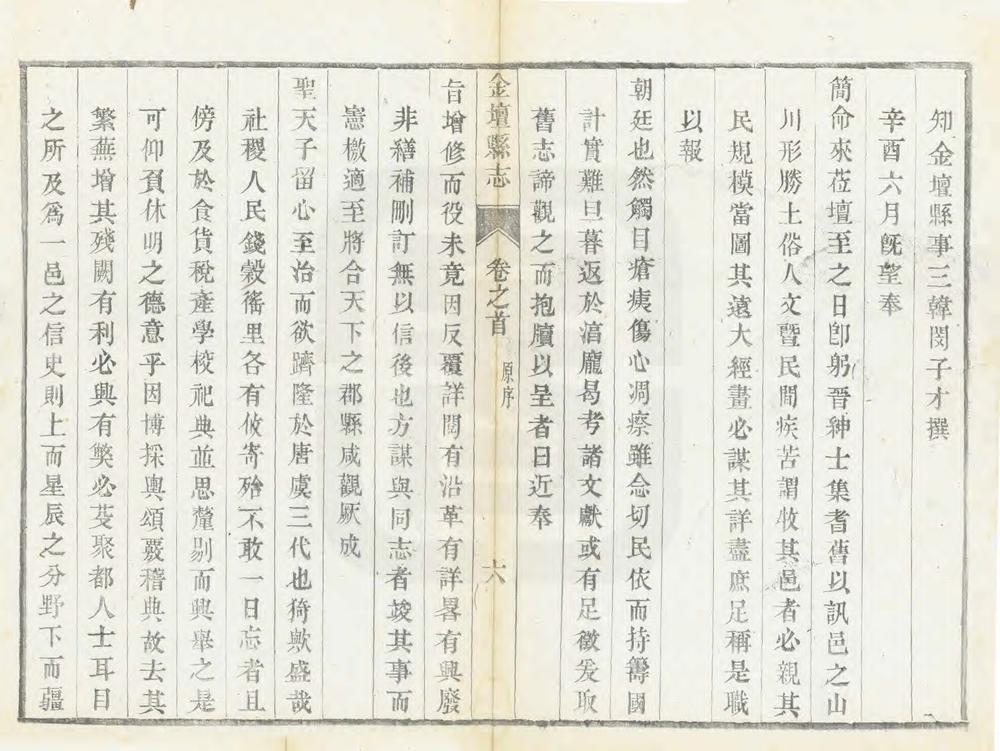 知金壇縣事三韓閔子才撰
辛酉六月旣望奉
簡命來莅壇至之日卽躬晉紳士集耆舊以訊邑之山
川形勝土俗人文曁民間疾苦謂牧其邑者必親其
民規模當圖其遠大經畫必謀其詳盡庶足稱是職
以報
朝廷也然觸目瘡痍傷心凋瘵雖念切民依而持籌國
計實難旦暮返於渞龐曷考諸文獻或有足徵爰取
舊志諦觀之而抱牘以呈者曰近奉
金壇縣志
卷之首
原序
六
旨增修而役未竟因反覆詳閱有沿革有詳畧有興廢
非繕補刪訂無以信後也方謀與同志者竣其事而
憲檄適至將合天下之郡縣咸觀厥成
聖天子留心至治而欲躋隆於唐虞三代也猗歟盛哉
社稷人民錢穀徭里各有攸寄殆不敢一日忘者且
傍及於食貨稅產學校祀典並思釐剔而興舉之是
可仰頁休明之德意乎因博採輿頌覈稽典故去其
繁蕪增其殘闕有利必興有獘必芟聚都人士耳目
之所及爲一邑之信史則上而星辰之分野下而疆